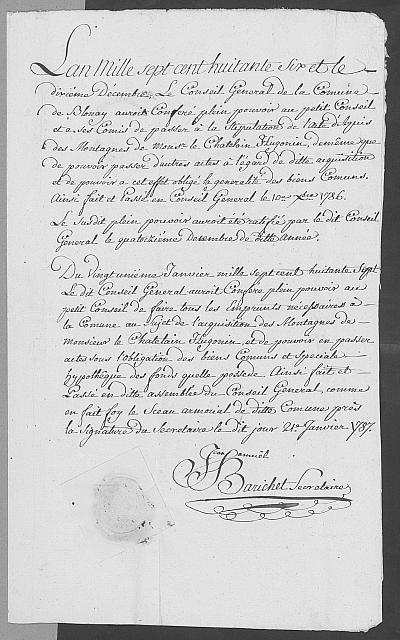 Lan Mille sept cent huitante Six et le
dixième Décembre. Le Conseil General de la Comune
de Blonay auroit Conferé plein pouvoir au petit Conseil
et a ses Comis de passer à la Stipulation de l'acte d'aquis
des Montagnes de Monsr. le Chatelain Hugonin, de même que
de pouvoir passer d'autres actes à l'égard de ditte acquisition
et de pouvoir a cet effet obligé la generalité des biens Comuns.
Ainsi fait et Passé en Conseil General le 10e Xbre 1786.
Le Susdit plein pouvoir auroit été ratifié par le dit Conseil
General le quatorzième Desembre de ditte Année.
Du Vingt unième Janvier mille sept cent huitante Sept
Le dit Conseil General auroit Conferé plein pouvoir au
petit Conseil de faire tous les Emprunts nécessaires à
la Comune au Sujet de l'acquisition des Montagnes de
monsieur le Chatelain Hugonin, et de pouvoir en passer
actes sous l'obligation des biens Comuns et Speciale
hypothèque des fonds quelle possede. Ainsi fait et
Passé en ditte assemblée du Conseil General, comme
en fait foy le Sceau armorial de ditte Comune près
la Signature du Secretaire le dit jour 21e Janvier 1787.
Jean Samuël
Barichet Secretaire